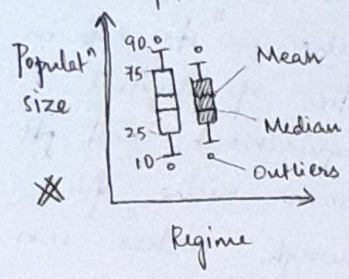 Populatⁿ
size
90
75
25
10
Mean
Median
Outliers
Regime